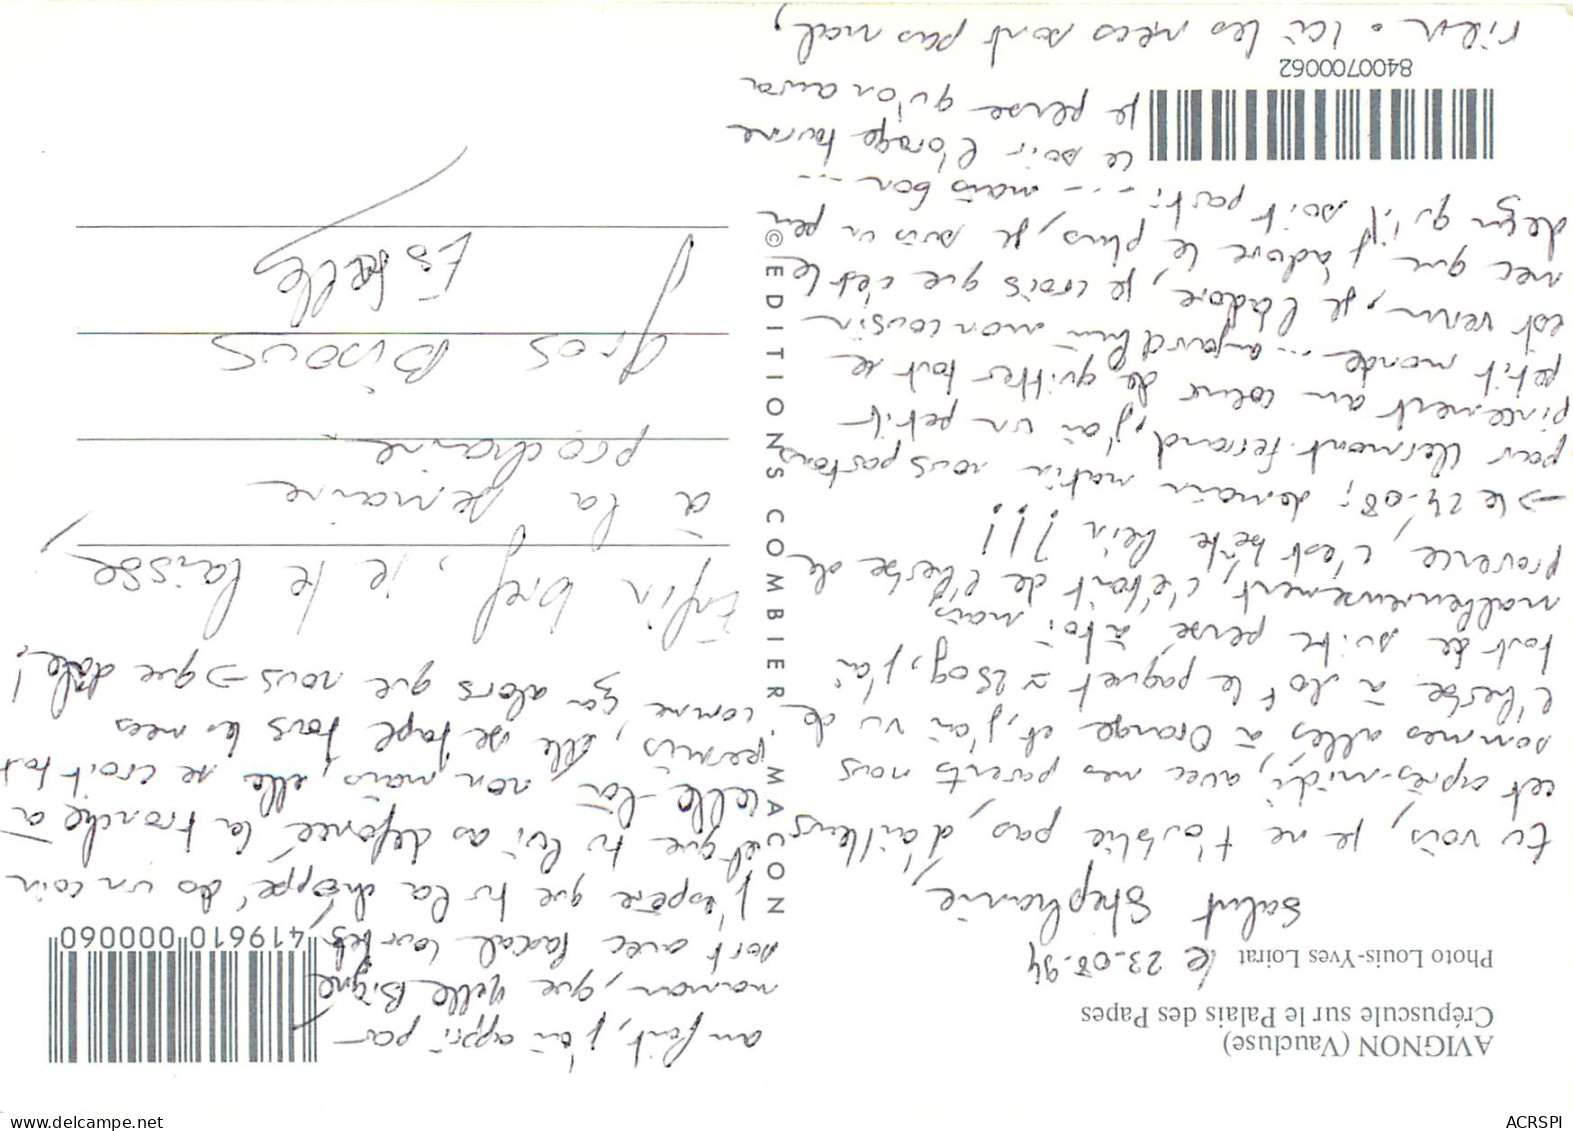 AVIGNON (Vaucluse)
Crépuscule sur le Palais des Papes
Photo Louis-Yves Loirat
le 23-08-94
Salut Stéphanie,
Tu vois, je ne t'oublie pas, d'ailleurs
cet après-midi, avec mes parents nous
sommes allés à Orange et, j'ai vu de
l'herbe à 20f le paquet ≈ 250g, j'ai
tout de suite pensé à toi mais
malheureusement, c'était de l'herbe de
provence, c'est bête hein !!!
→ le 24-08, demain matin nous partons
pour Clermont-ferrand, j'ai un petit
pincement au coeur de quitter tout ce
petit monde ... aujourd'hui mon cousin
est venu, je l'adore, je crois que c'est le
mec que j'adore le plus, je suis un peu
déçu qu'il soit parti ... mais bon ...
Ce soir l'orage tourne
je pense qu'on aura
rien. Ici les mecs sont pas mal,
8400700062
© EDITIONS COMBIER MACON
au fait, j'ai appri par
maman, que Melle Bigné
sort avec Pascal
J'espère que tu la choppé ds un coin
et que tu lui as défoncé la tronche à
celle-là, non mais, elle se croit tout
permis, elle se tape tous les mecs
comme ça alors que nous → que dale!
Enfin bref, je te laisse,
à la semaine
prochaine
Gros Bisous
Estelle
419610 000060
delcampe.net
ACRSPI